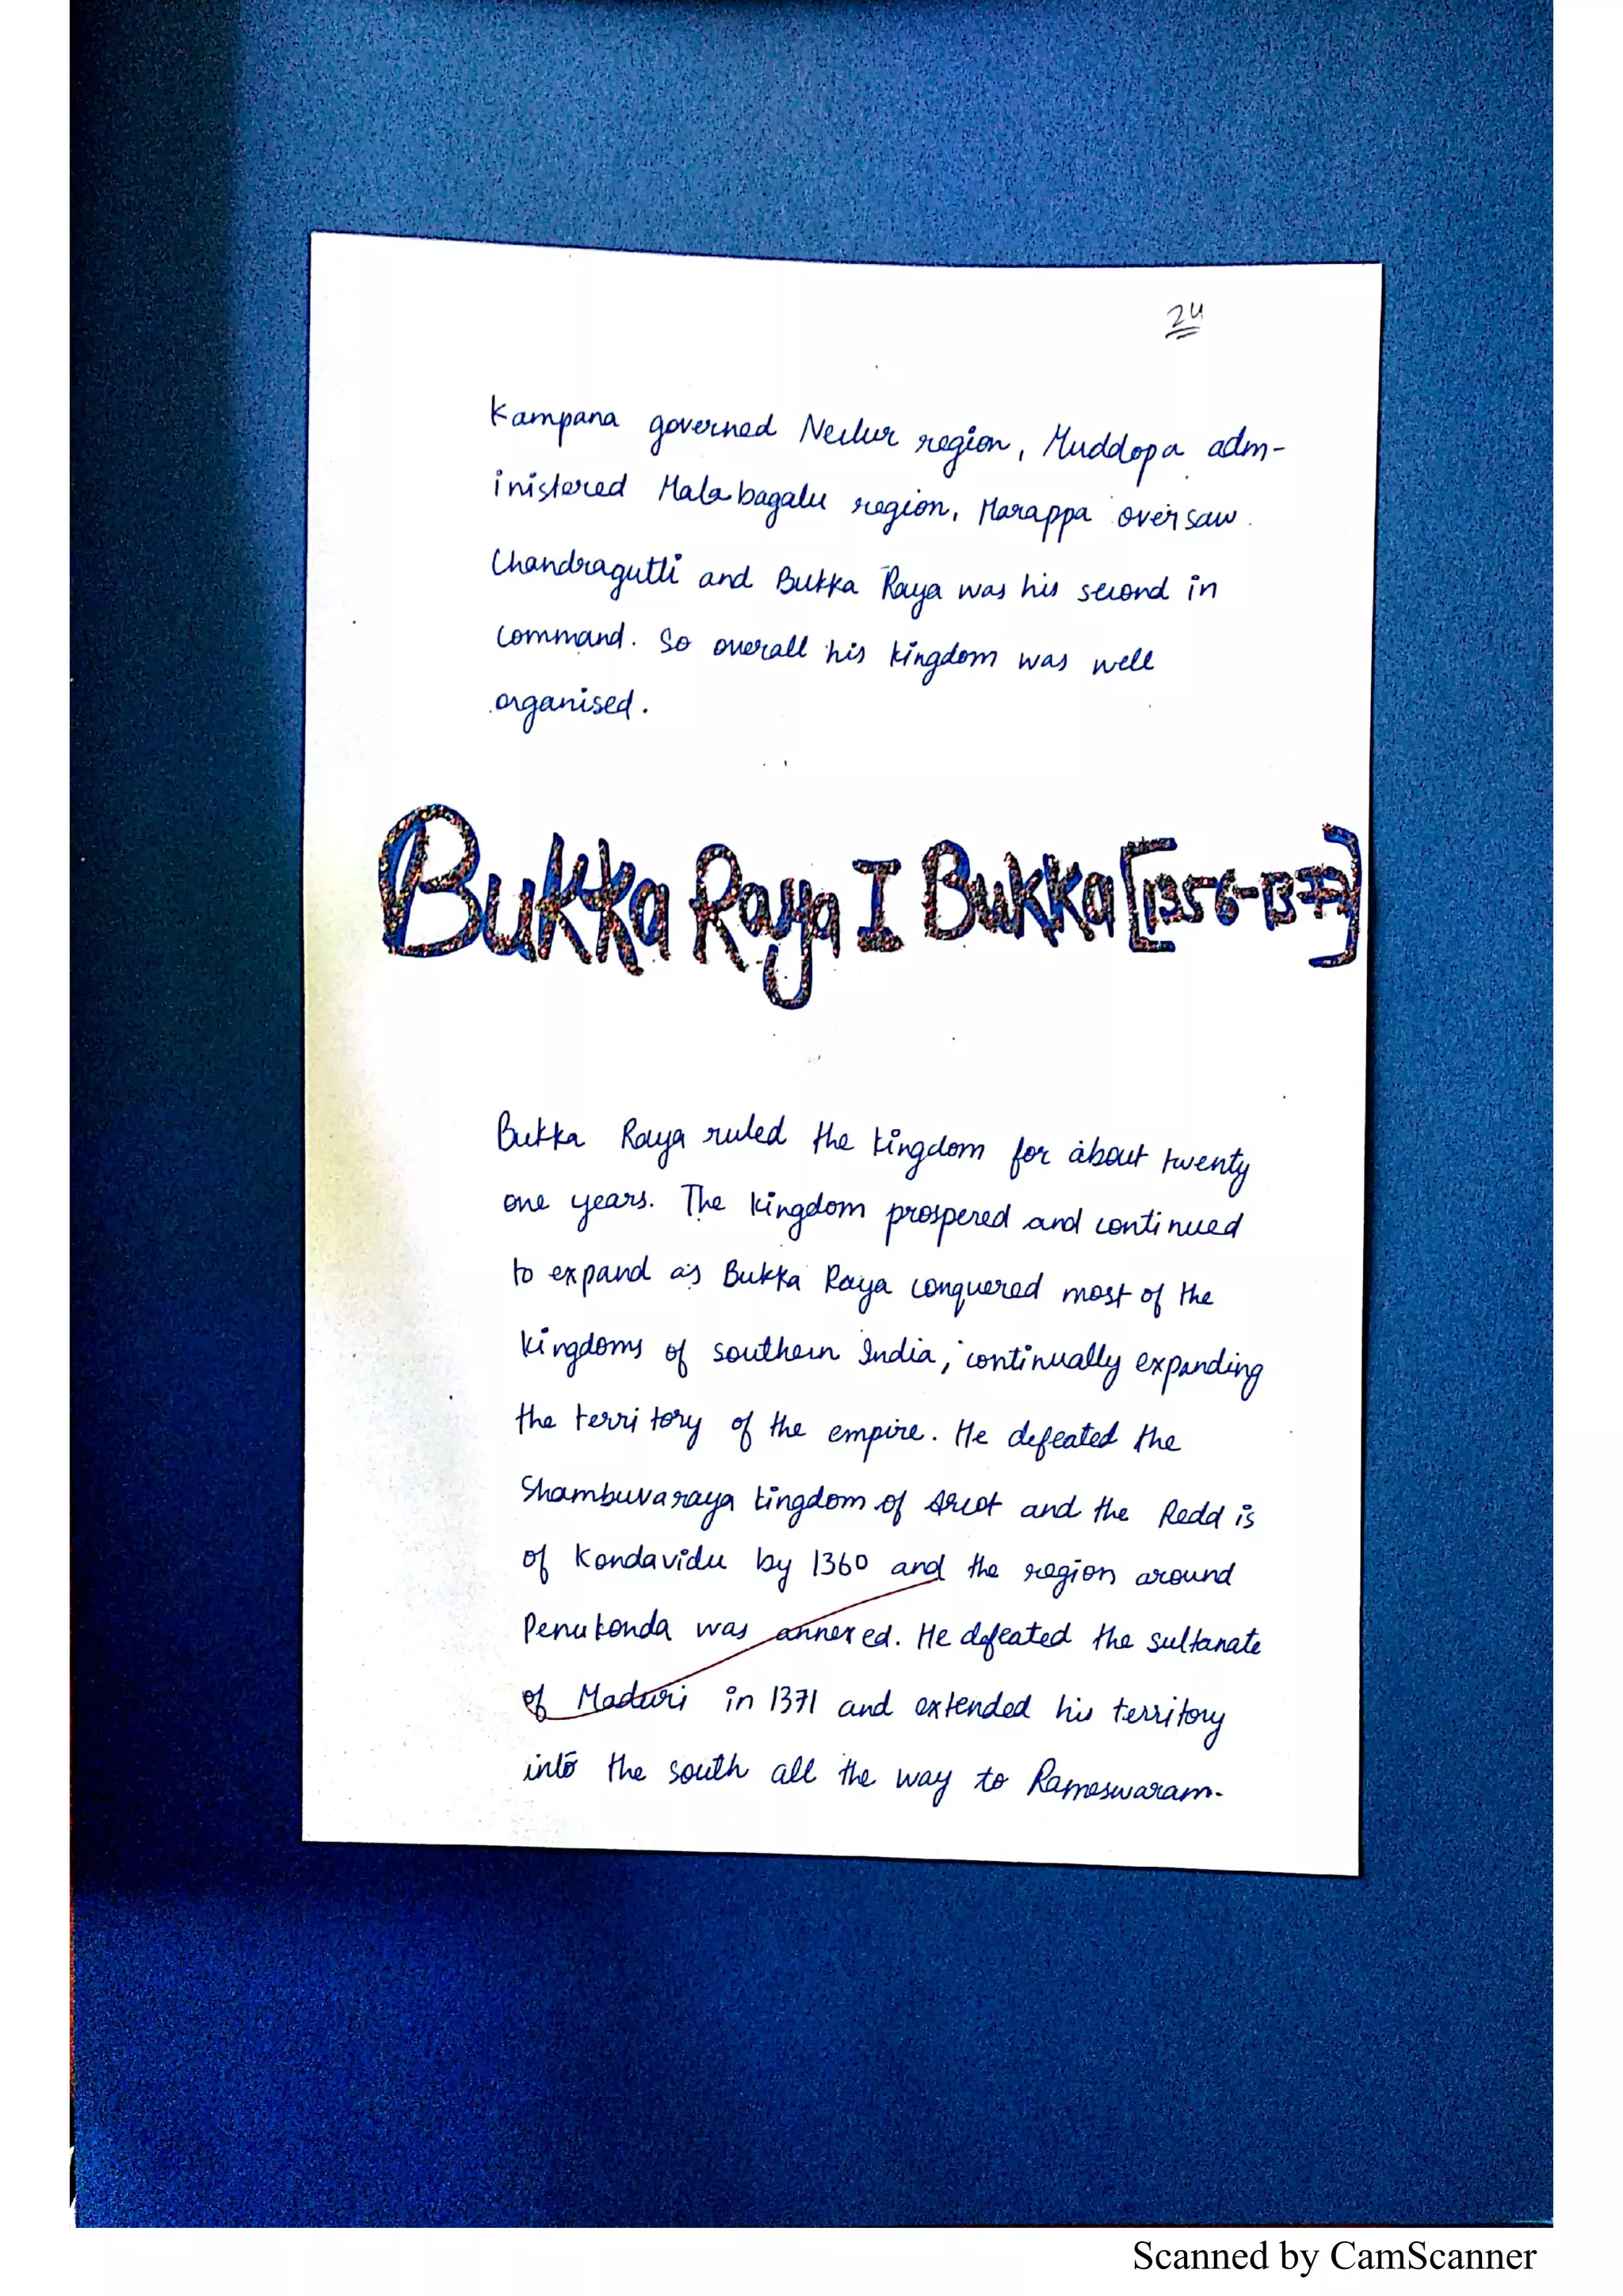 24
Kampana governed Nellur region, Muddopa adm-
inistered Malabagalu region, Marappa oversaw
Chandragutti and Bukka Raya was his second in
command. So overall his kingdom was well
organised.
Bukka Raya I Bukka [1356-1377]
Bukka Raya ruled the kingdom for about twenty
one years. The kingdom prospered and continued
to expand as Bukka Raya conquered most of the
kingdoms of southern India, continually expanding
the territory of the empire. He defeated the
Shambuvaraya kingdom of Arcot and the Reddis
of Kondavidu by 1360 and the region around
Penukonda was annexed. He defeated the sultanate
of Maduri in 1371 and extended his territory
into the south all the way to Rameswaram.
Scanned by CamScanner